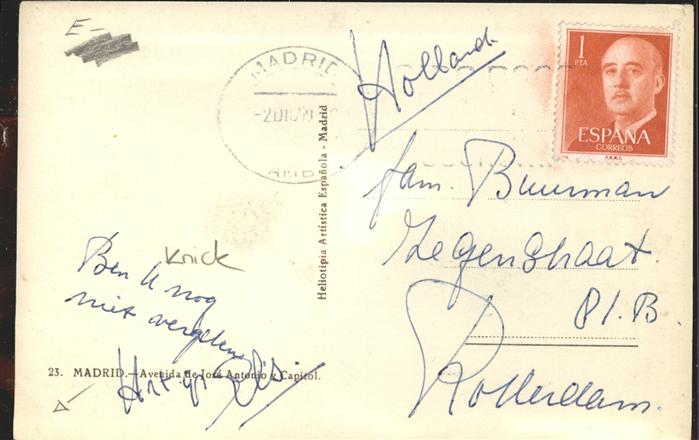 E-
MADRID
-2 DIC 59
AMB
Holland
1
PTA
ESPAÑA
CORREOS
F.N.M.T.
Heliotipia Artística Española - Madrid
fam. Buurman
Zegenstraat.
81.B.
Rotterdam.
Knick
Ben U nog
niet vergeten
23. MADRID.—Avenida de José Antonio y Capitol.